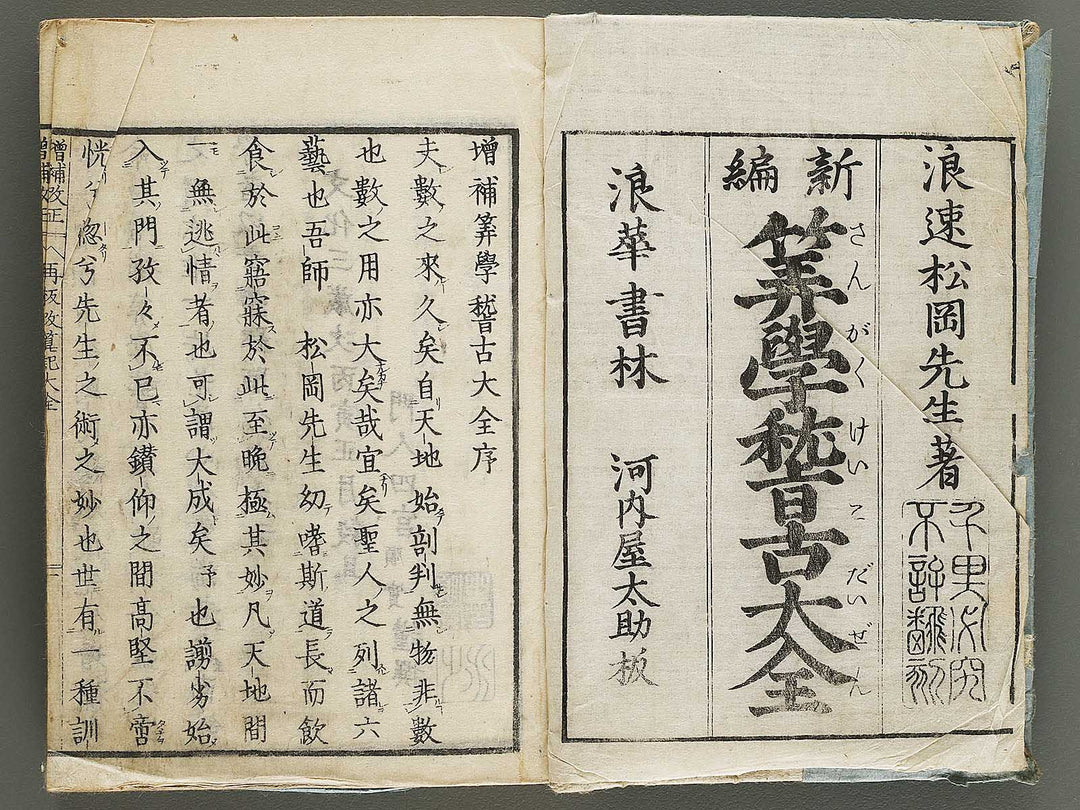 浪速松岡先生著
新編
算學稽古大全
さんがくけいこだいぜん
浪華書林 河内屋太助板
增補算學稽古大全序
夫數之來久矣自天地始剖判無物非數
也數之用亦大矣哉宜矣聖人之列諸六
藝也吾師 松岡先生幼嗜斯道長而飲
食於此寤寐於此至晩極其妙凡天地間
一無逃情者也可謂大成矣予也謭劣始
入其門孜々不已亦鑚仰之間高堅不啻
恍兮惚兮先生之術之妙也世有一種訓